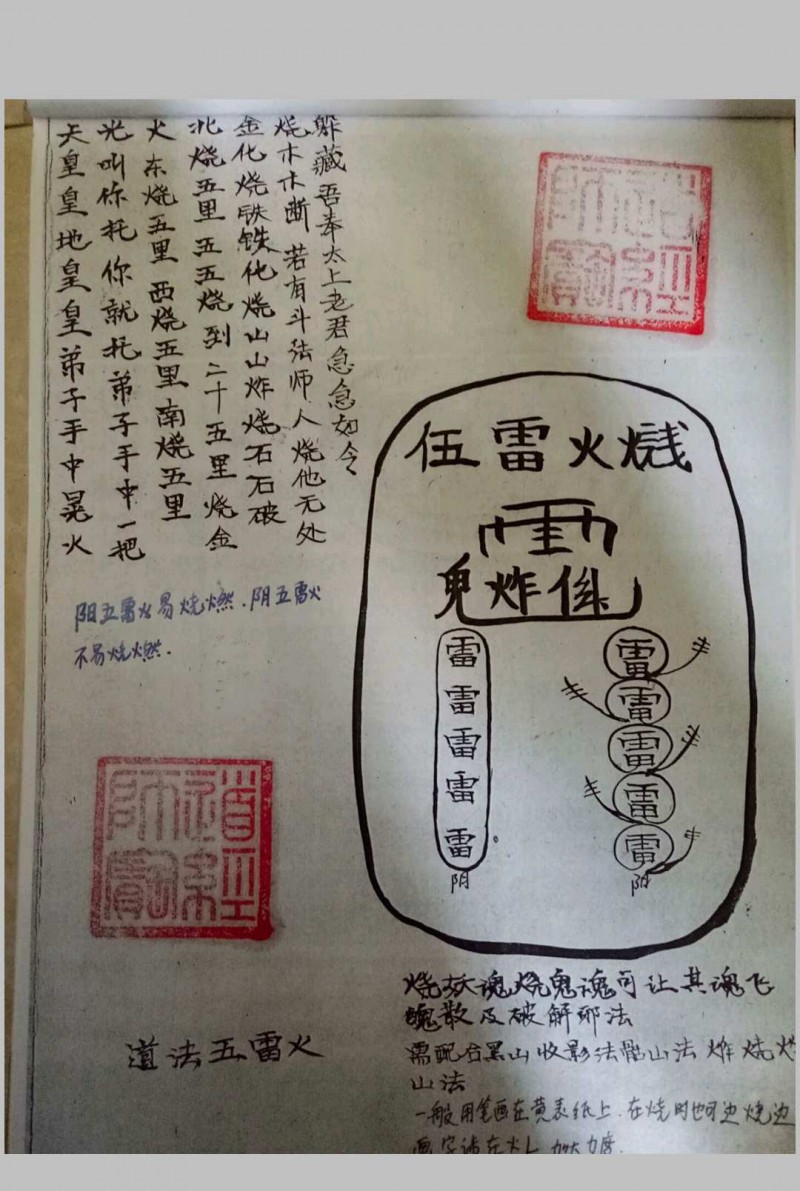 天皇皇地皇皇弟子手中晃火
光叫你托你就托弟子手中一把
火东烧五里西烧五里南烧五里
北烧五里五五烧到二十五里烧金
金化烧铁铁化烧山山炸烧石石破
烧木木断 若有斗法师人烧他无处
躲藏吾奉太上老君急急如令
阳五雷火易烧燃.阴五雷火
不易烧燃.
道經師寳
道經師寳
道法五雷火
伍雷火
鬼炸係
雷
雷
雷
雷
雷
阴
雷
雷
雷
雷
雷
阳
烧妖魂烧鬼魂可让其魂飞
魄散及破解邪法
需配合黑山收影法 山法炸烧
山法
一般用笔画在黄表纸上.在烧时也可边烧边
画字讳在火上 加大力度.